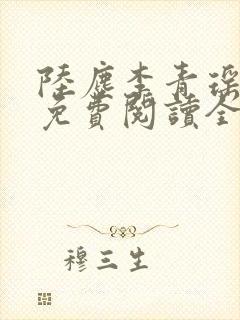 陸塵李青瑤
免費閱讀全
穆三生